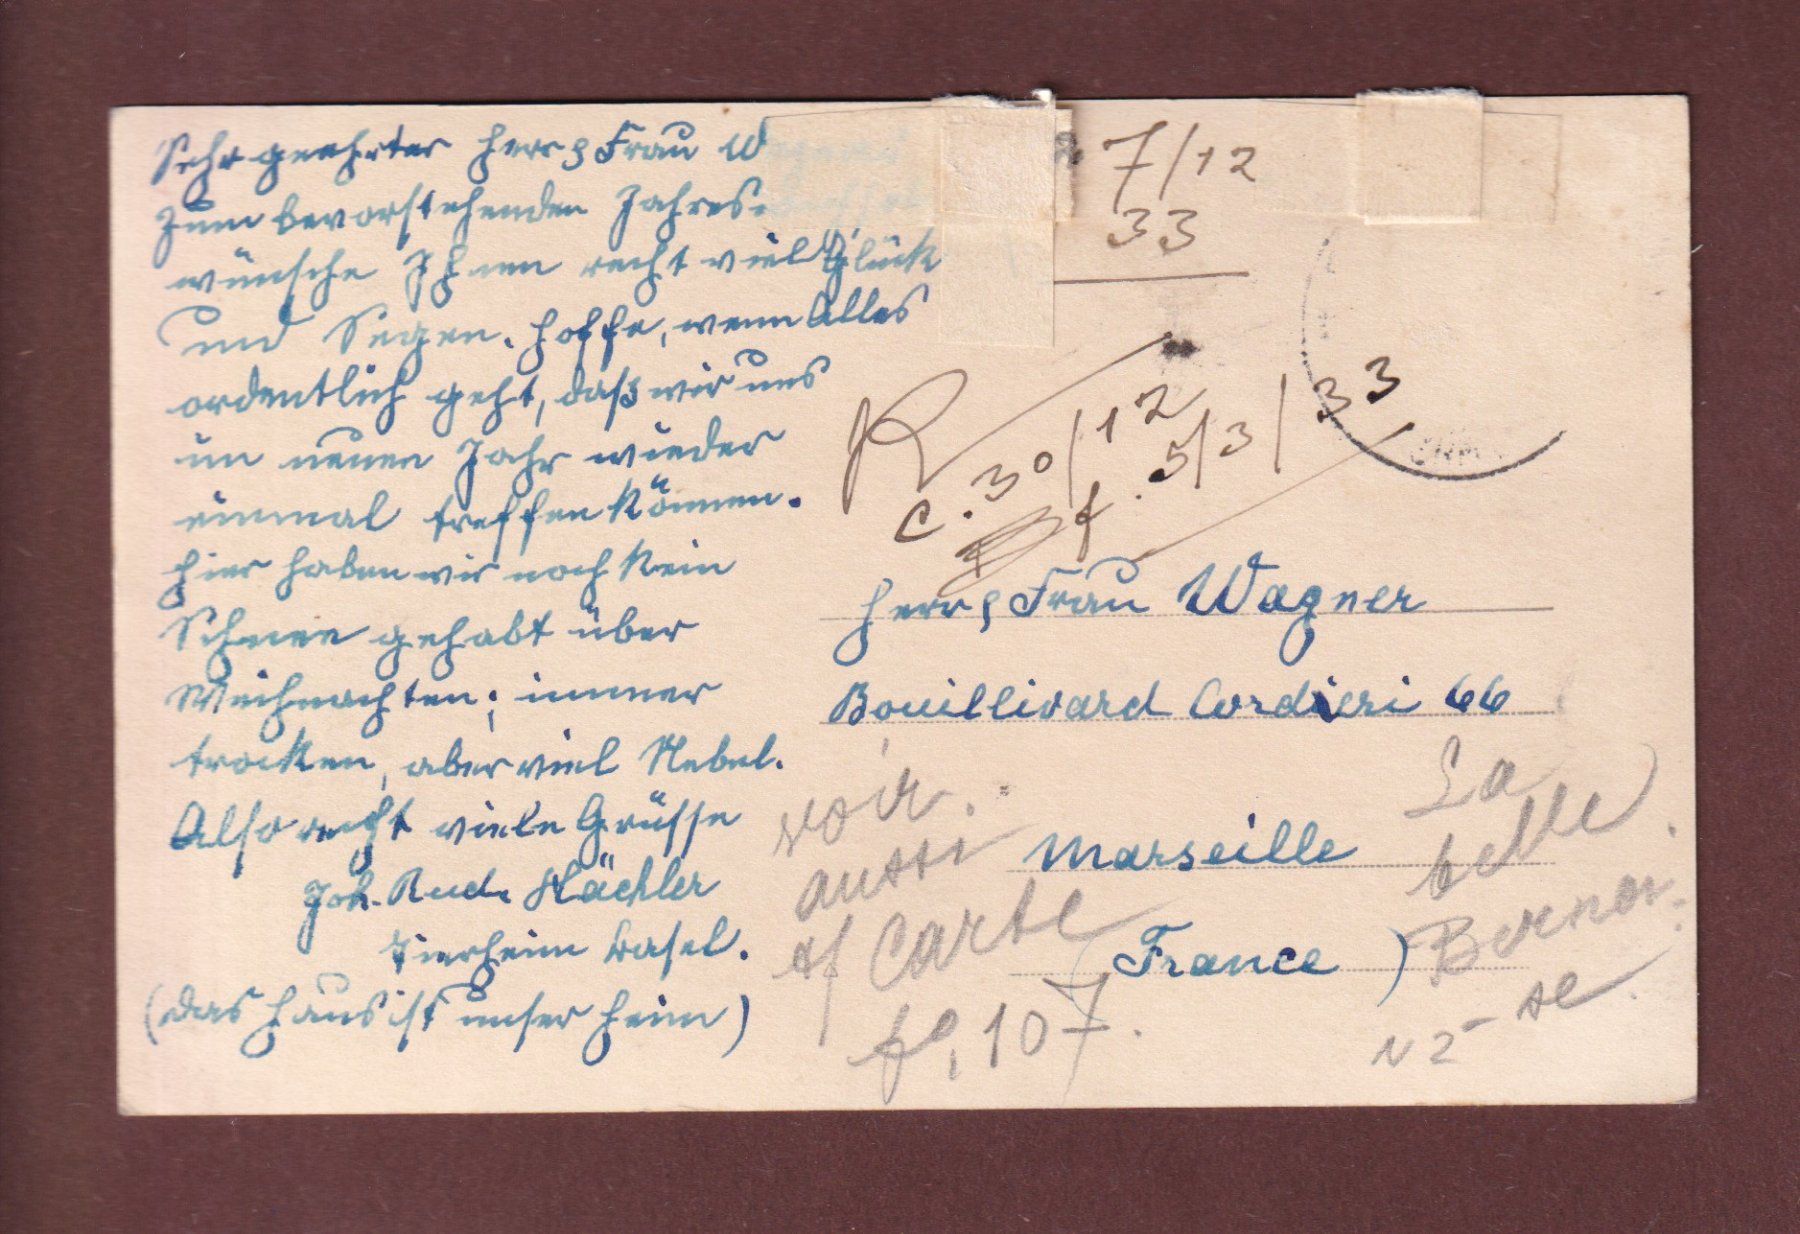 Sehr geehrter Herr & Frau W
Zum bevorstehenden Jahres-
wünsche Ihnen recht viel Glück
und Segen. Hoffe, wenn Alles
ordentlich geht, daß wir uns
im neuen Jahr wieder
einmal treffen können.
Hier haben wir noch kein
Schnee gehabt über
Weihnachten; immer
trocken, aber viel Nebel.
Also recht viele Grüsse
Joh. Rud. Hächler
Tierheim Basel.
(das Haus ist unser Heim)
7/12
33
R
c. 30/12
f. 5/3/33
Herr & Frau Wagner
Bouillivard Cordieri 66
Marseille
(France)
voir
aussi
Carte
fo, 107.
La
belle
Bernoi-
se
N 2